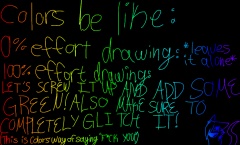 Colors be like:
0% effort drawing: *leaves it alone*
100% effort drawing:
LET'S SCREW IT UP AND ADD SOME
GREEN! ALSO MAKE SURE TO
COMPLETELY GLITCH IT!
This is Colors way of saying "F*CK YOU"